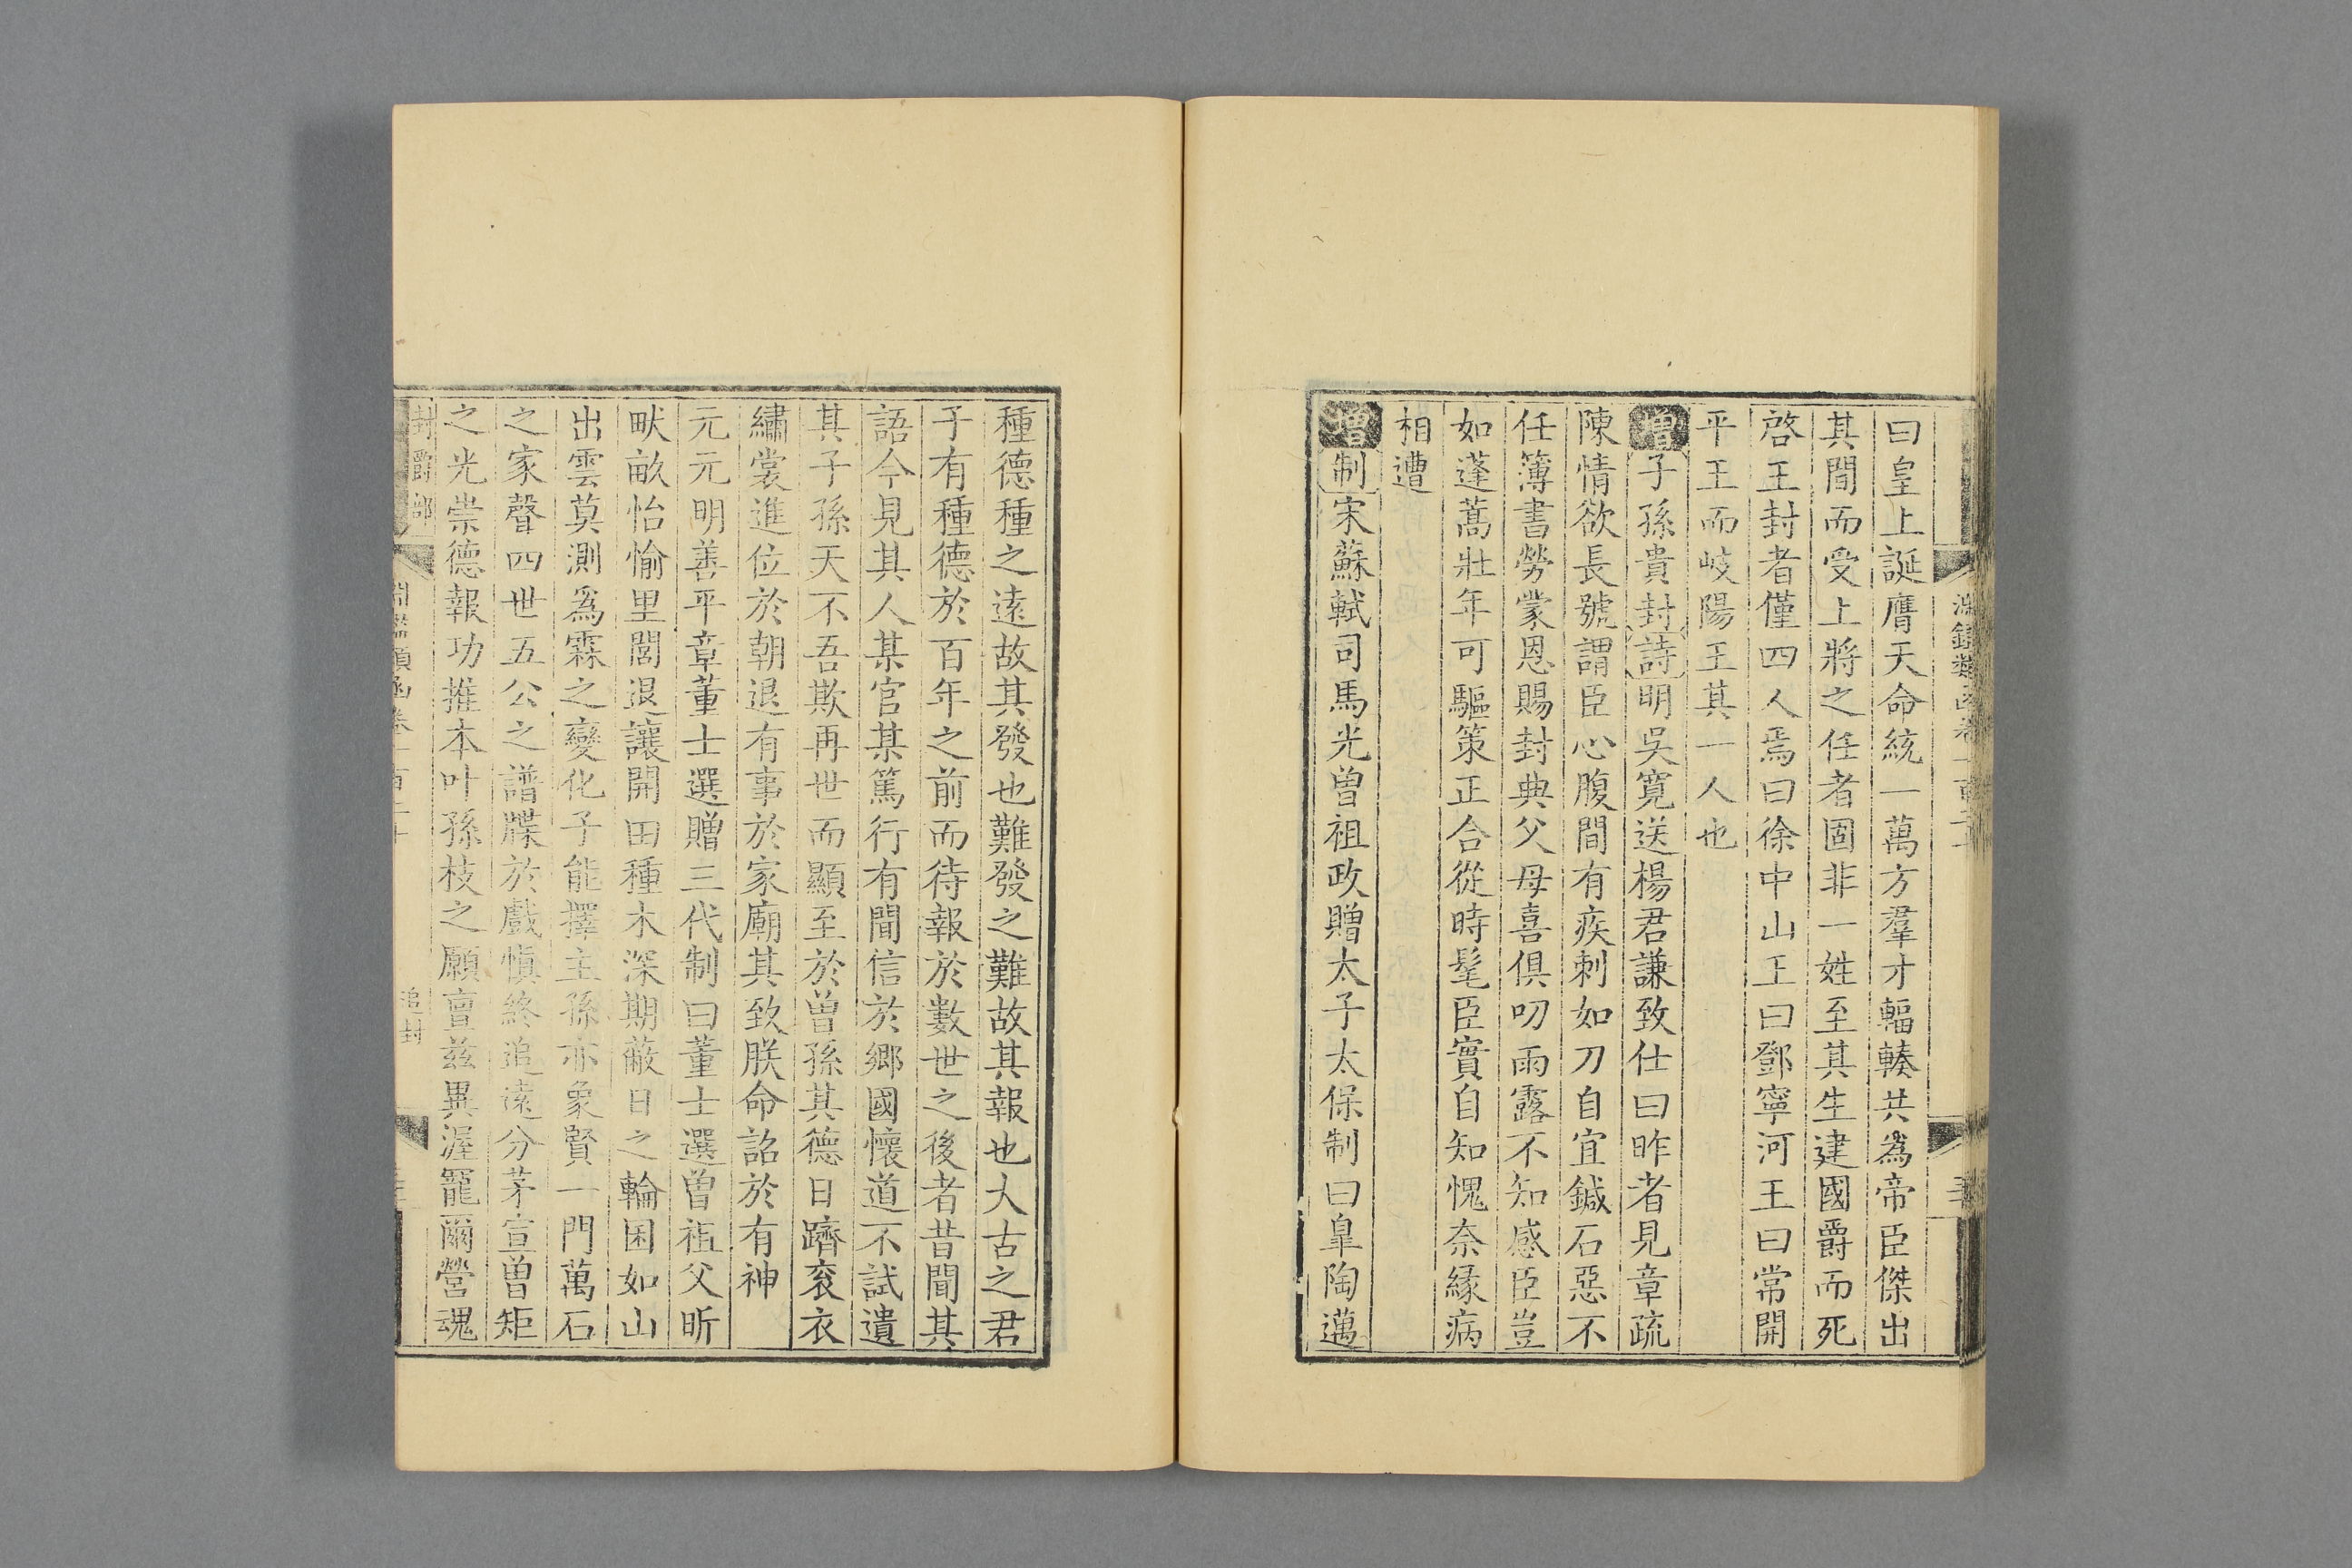 曰皇上誕膺天命統一萬方羣才輻輳共為帝臣傑出
其間而受上將之任者固非一姓至其生建國爵而死
啓王封者僅四人焉曰徐中山王曰鄧寧河王曰常開
平王而岐陽王其一人也
增子孫貴封詩明吳寬送楊君謙致仕曰昨者見章疏
陳情欲長號謂臣心腹間有疾刺如刀自宜鍼石惡不
任簿書勞蒙恩賜封典父母喜俱叨雨露不知感臣豈
如蓬蒿壯年可驅策正合從時髦臣實自知愧奈緣病
相遭
增制宋蘇軾司馬光曾祖政贈太子太保制曰皐陶邁
種德種之逺故其發也難發之難故其報也大古之君
子有種德於百年之前而待報於數世之後者昔聞其
語今見其人某官某篤行有聞信於鄉國懷道不試遺
其子孫天不吾欺再世而顯至於曾孫其德日躋衮衣
繡裳進位於朝退有事於家廟其致朕命詔於有神
元元明善平章董士選贈三代制曰董士選曾祖父昕
畎畝怡愉里閭退讓開田種木深期蔽日之輪囷如山
出雲莫測爲霖之變化子能擇主孫亦象賢一門萬石
之家聲四世五公之譜牒於戲慎終追逺分茅宣曾矩
之光崇德報功推本叶孫枝之願亶茲異渥寵爾營魂
封爵部
追封